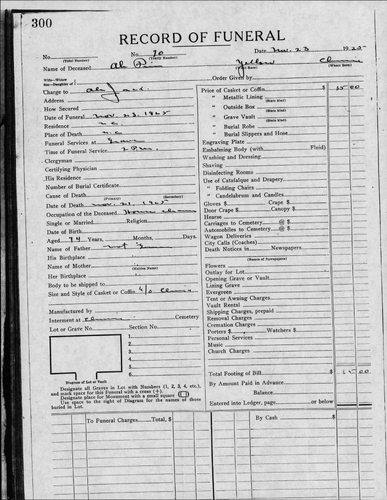 300
RECORD OF FUNERAL
No. No. 90 Date Nov. 23 1925
(Total Number) (Yearly Number)
Name of Deceased Ah Yellow (Where Born)
Wife—Widow
Son—Daughter of
Order Given by
Charge to Ah Jack
Address
How Secured
Date of Funeral Nov. 23, 1925
Residence
Place of Death
Funeral Services at
Time of Funeral Service 2 P.M.
Clergyman
Certifying Physician
His Residence
Number of Burial Certificate
Cause of Death
(Primary) (Secondary)
Date of Death Nov. 21, 1925
Occupation of the Deceased
Single or Married Religion
Date of Birth
Aged 74 Years, Months, Days.
Name of Father not
His Birthplace
Name of Mother
(Maiden Name)
Her Birthplace
Body to be shipped to
Size and Style of Casket or Coffin
Manufactured by
Interment at Cemetery
Lot or Grave No. Section No.
1.
2.
3.
4.
5.
6.
Diagram of Lot or Vault
Designate all Graves in Lot with Numbers (1, 2, 3, 4, etc.),
and mark space for this Funeral with a cross (+).
Designate place for Monument with a small square
Use space to the right of Diagram for the names of those
buried in Lot.
Price of Casket or Coffin $
" Metallic Lining
(State Kind)
" Outside Box
(State Kind)
" Grave Vault
(State Kind)
" Burial Robe
(State Kind)
" Burial Slippers and Hose
Engraving Plate
Embalming Body (with Fluid)
Washing and Dressing
Shaving
Disinfecting Rooms
Use of Catafalque and Drapery
" Folding Chairs
" Candelabrum and Candles
Gloves $ Crape $
Door Crape $ Canopy $
Hearse
Carriages to Cemetery @ $
Automobiles to Cemetery @ $
Wagon Deliveries
City Calls (Coaches)
Death Notices in Newspapers
(Names of Newspapers)
Flowers
Outlay for Lot
Opening Grave or Vault
Lining Grave
Evergreen
Tent or Awning Charges
Vault Rental
Shipping Charges, prepaid
Removal Charges
Cremation Charges
Porters $ Watchers $
Personal Services
Music
Church Charges
Total Footing of Bill $
By Amount Paid in Advance
Balance
Entered into Ledger, page or below.
To Funeral Charges Total, $
By Cash $